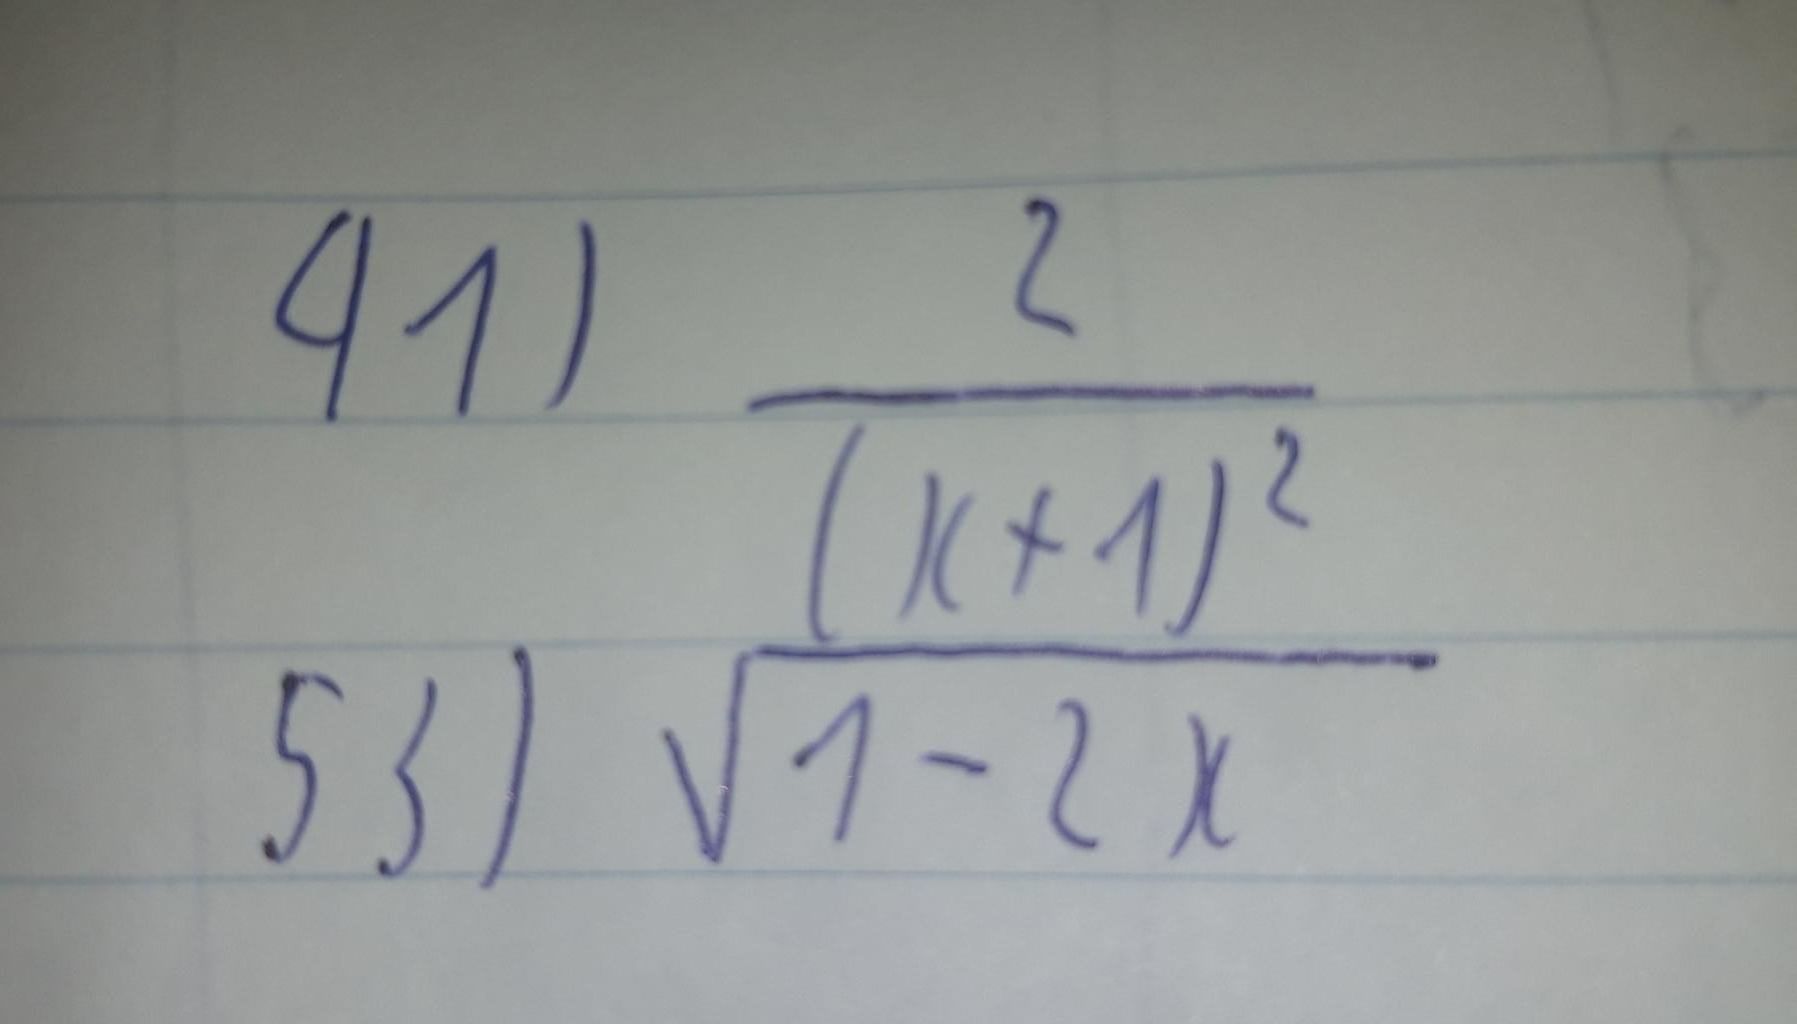 41) 2/(x+1)²
53) √(1-2x)